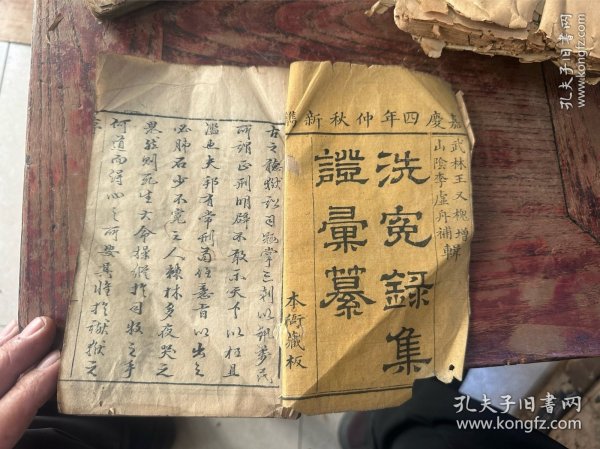 嘉慶四年仲秋新鐫
武林王又槐增輯
山陰李虛舟補輯
洗冤録集
證彙纂
本衙藏板
古之聽獄訟司
刺以
民
所謂正刑明辟不敢示天下以枉且
濫也夫邦有常刑苟任意旨以出之
必肺石少不冤之人棘林多夜哭之
果然則死生大命操縱於司牧之手
何道而得心之所安其將於獄獄之
孔夫子旧书网
www.kongfz.com
孔夫子旧书网